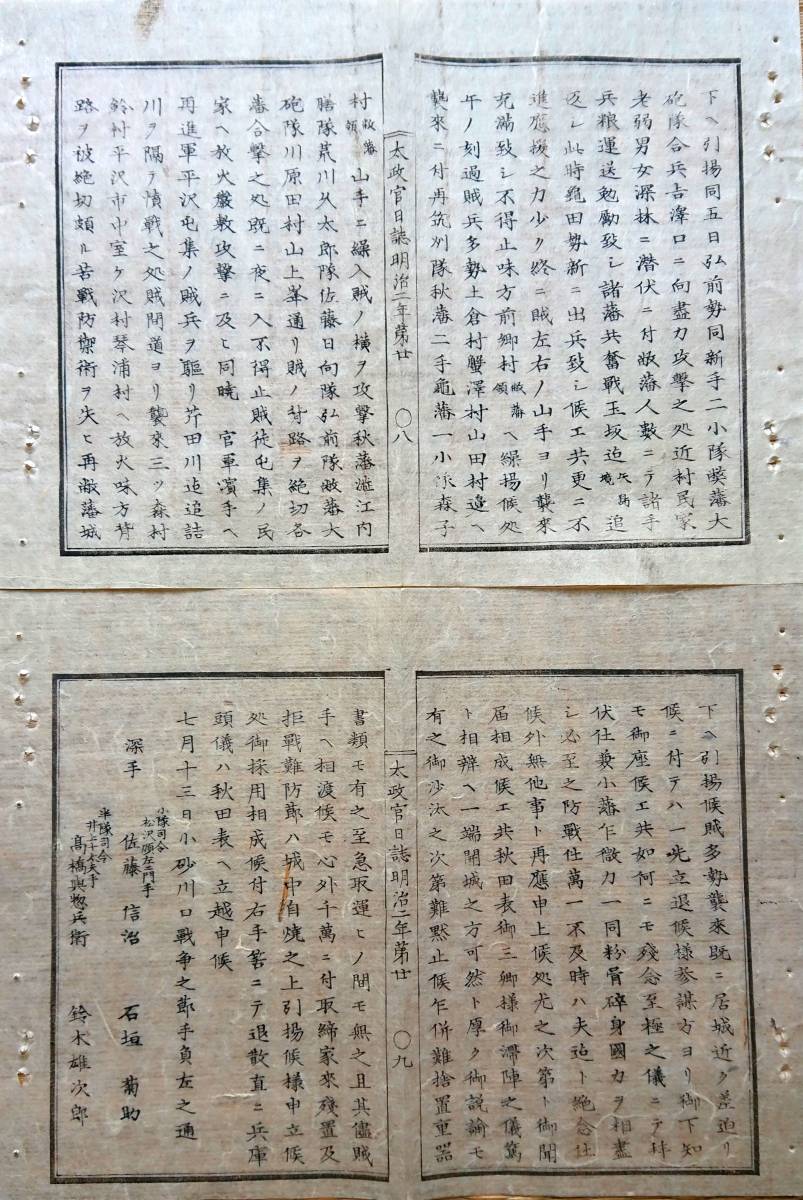 下ヘ引揚同五日弘前勢同新手二小隊弊藩大
砲隊合兵吉澤口ニ向盡力攻撃之処近村民家
老弱男女深林ニ潜伏ニ付敝藩人數ニテ諸手
兵粮運送勉勵致シ諸藩共奮戰玉坂迠矢島境追
返シ此時亀田勢新ニ出兵致シ候エ共更ニ不
進應援之力少ク終ニ賊左右ノ山手ヨリ襲來
充満致シ不得止味方前郷村敝藩領ヘ繰揚候処
午ノ刻過賊兵多勢土倉村蟹澤村山田村邉ヘ
襲來ニ付再筑州隊秋藩二手亀藩一小隊森子
太政官日誌明治二年第廿 〇八
村敝藩領山手ニ繰入賊ノ横ヲ攻撃秋藩澁江内
膳隊荒川久太郎隊佐藤日向隊弘前隊敝藩大
砲隊川原田村山上峯通リ賊ノ背路ヲ絶切各
藩合撃之処既ニ夜ニ入不得止賊徒屯集ノ民
家ヘ放火嚴敷攻撃ニ及ヒ同曉 官軍濱手ヘ
再進軍平沢屯集ノ賊兵ヲ驅リ芹田川迠追詰
川ヲ隔テ憤戰之処賊間道ヨリ襲來三ツ森村
鈴村平沢市中室ケ沢村琴浦村ヘ放火味方背
路ヲ被絶切頗ル苦戰防禦術ヲ失ヒ再敝藩城
下ヘ引揚候賊多勢襲來既ニ居城近ク差迫リ
候ニ付テハ一先立退候様参謀方ヨリ御下知
モ御座候エ共如何ニモ殘念至極之儀ニテ拝
伏仕兼小藩乍微力一同粉骨碎身國力ヲ相盡
シ必至之防戰仕萬一不及時ハ夫迠ト絶念仕
候外無他事ト再應申上候処尤之次第ト御聞
届相成候エ共秋田表御三卿様御滯陣之儀篤
ト相辨ヘ一端開城之方可然ト厚ク御説諭モ
有之御沙汰之次第難黙止候乍併難捨置重器
太政官日誌明治二年第廿 〇九
書類モ有之至急取運ヒノ間モ無之且其儘賊
手ヘ相渡候モ心外千萬ニ付取締家來殘置及
拒戰難防節ハ城中自焼之上引揚候様申立候
処御採用相成候付右手筈ニテ退散直ニ兵庫
頭儀ハ秋田表ヘ立越申候
七月十三日小砂川口戰争之節手負左之通
小隊司令
松沢順左エ門手
深手 佐藤信治 石垣菊助
半隊司令
井上十太夫手
髙橋與惣兵衛 鈴木雄次郎